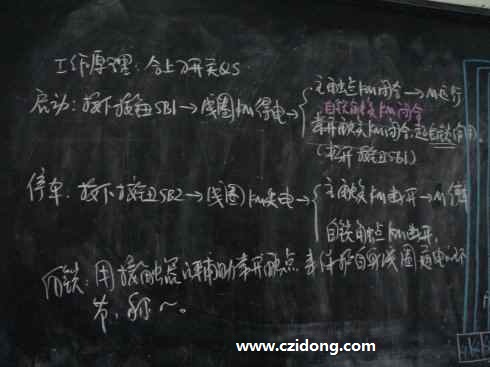 工作原理：合上开关QS
启动：按下按钮SB1→线圈KM得电→
主触点KM闭合→M运行
自锁触头KM闭合
常开触头KM闭合，起自锁作用
(松开按钮SB1)
停车：按下按钮SB2→线圈KM失电→
主触头KM断开→M停
自锁触点KM断开
自锁：用接触器 辅助常开触点 自身线圈通电
称～。
www.czidong.com